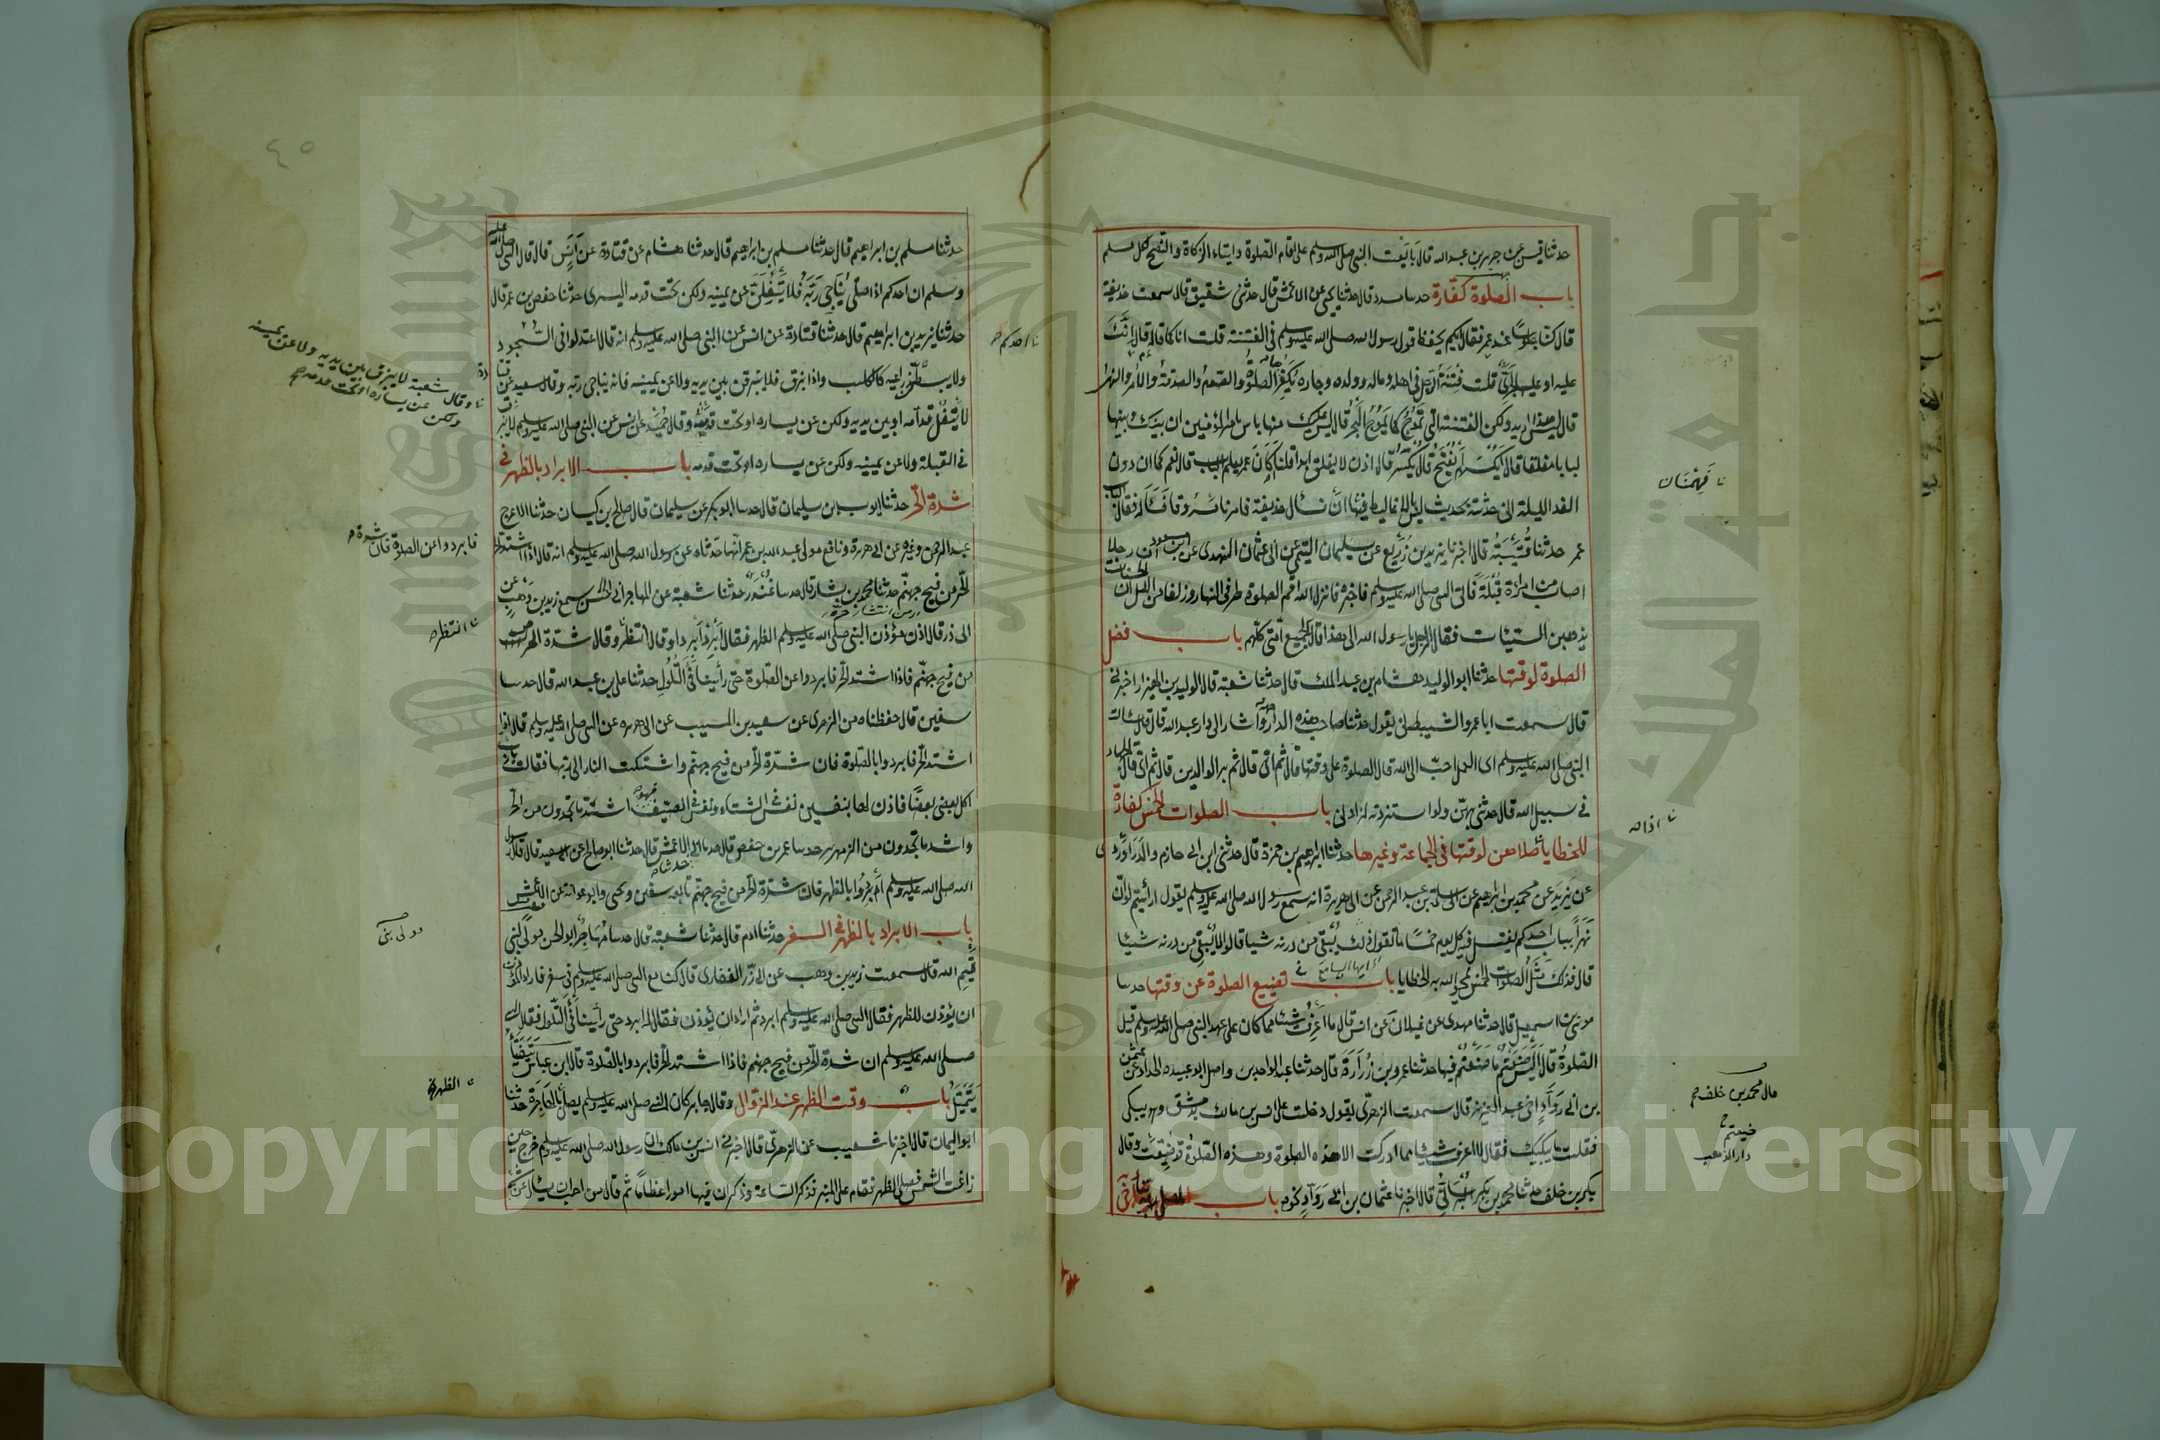 حدثنا قيس عن جرير بن عبد الله قال بايعت النبي صلى الله عليه وسلم على اقام الصلوة وايتاء الزكاة والنصح لكل مسلم
باب الصلوة كفارة حدثنا مسدد قال حدثنا يحيى عن الاعمش قال حدثني شقيق قال سمعت حذيفة
قال كنا جلوسا عند عمر فقال ايكم يحفظ قول رسول الله صلى الله عليه وسلم في الفتنة قلت انا كما قاله قال انك
عليه او عليها لجرئ قلت فتنة الرجل في اهله وماله وولده وجاره يكفرها الصلوة والصوم والصدقة والامر والنهي
قال ليس هذا اريد ولكن الفتنة التي تموج كما يموج البحر قال ليس عليك منها باس يا امير المؤمنين ان بينك وبينها
لبابا مغلقا قال ايكسر ام يفتح قال يكسر قال اذن لا يغلق ابدا قلنا اكان عمر يعلم الباب قال نعم كما ان دون
الغد الليلة اني حدثته بحديث ليس بالاغاليط فهبنا ان نسال حذيفة فامرنا مسروقا فساله فقال الباب
عمر حدثنا قتيبة قال اخبرنا يزيد بن زريع عن سليمان التيمي عن ابي عثمان النهدي عن ابن مسعود ان رجلا
اصاب من امراة قبلة فاتى النبي صلى الله عليه وسلم فاخبره فانزل الله اقم الصلوة طرفي النهار وزلفا من الليل ان الحسنات
يذهبن السيئات فقال الرجل يا رسول الله الي هذا قال لجميع امتي كلهم باب فضل
الصلوة لوقتها حدثنا ابو الوليد هشام بن عبد الملك قال حدثنا شعبة قال الوليد بن العيزار اخبرني
قال سمعت ابا عمرو الشيباني يقول حدثنا صاحب هذه الدار واشار الى دار عبد الله قال سالت
النبي صلى الله عليه وسلم اى العمل احب الى الله قال الصلوة على وقتها قال ثم اي قال ثم بر الوالدين قال ثم اي قال الجهاد
في سبيل الله قال حدثني بهن ولو استزدته لزادني باب الصلوات الخمس كفارة
للخطايا اذا صلاهن لوقتها في الجماعة وغيرها حدثنا ابراهيم بن حمزة قال حدثني ابن ابي حازم والدراوردي
عن يزيد عن محمد بن ابراهيم عن ابي سلمة بن عبد الرحمن عن ابي هريرة انه سمع رسول الله صلى الله عليه وسلم يقول ارايتم لو ان
نهرا بباب احدكم يغتسل فيه كل يوم خمسا ما تقول ذلك يبقي من درنه شيا قالوا لا يبقي من درنه شيئا
قال فذلك مثل الصلوات الخمس يمحو الله به الخطايا باب في تضييع الصلوة عن وقتها حدثنا
موسى بن اسمعيل قال حدثنا مهدي عن غيلان عن انس قال ما اعرف شيئا مما كان على عهد النبي صلى الله عليه وسلم قيل
الصلوة قال اليس صنعتم ما صنعتم فيها حدثنا عمرو بن زرارة قال حدثنا عبد الواحد بن واصل ابو عبيدة الحداد عن عثمن
بن ابي رواد اخي عبد العزيز قال سمعت الزهري يقول دخلت على انس بن مالك بدمشق وهو يبكي
فقلت ما يبكيك فقال لا اعرف شيئا مما ادركت الا هذه الصلوة وهذه الصلوة قد ضيعت وقال
بكر بن خلف حدثنا محمد بن بكر البرساني قال اخبرنا عثمان بن ابي رواد نحوه باب
اذا صـ
قال محمد بن خلف
ضيعتم
حدثنا مسلم بن ابراهيم قال حدثنا مسلم بن ابراهيم قال حدثنا هشام عن قتادة عن انس قال قال النبي صلى الله عليه
وسلم ان احدكم اذا صلى يناجي ربه فلا يتفلن عن يمينه ولكن تحت قدمه اليسرى حدثنا حفص بن عمر قال
حدثنا يزيد بن ابراهيم قال حدثنا قتادة عن انس عن النبي صلى الله عليه وسلم انه قال اعتدلوا في السجود
ولا يبسط ذراعيه كالكلب واذا بزق فلا يبزقن بين يديه ولا عن يمينه فانه يناجي ربه وقال سعيد عن قتادة
لا يتفل قدامه او بين يديه ولكن عن يساره او تحت قدمه وقال حميد عن انس عن النبي صلى الله عليه وسلم لا يبزق
في القبلة ولا عن يمينه ولكن عن يساره او تحت قدمه باب الابراد بالظهر في
شدة الحر حدثنا ايوب بن سليمان قال حدثنا ابو بكر عن سليمان قال صالح بن كيسان حدثنا الاعرج
عبد الرحمن وغيره عن ابي هريرة ونافع مولى عبد الله بن عمر انهما حدثاه عن رسول الله صلى الله عليه وسلم انه قال اذا اشتد الحر
الحر من فيح جهنم حدثنا محمد بن بشار قال حدثنا غندر حدثنا شعبة عن المهاجر ابي الحسن سمع زيد بن وهب عن
ابي ذر قال اذن مؤذن النبي صلى الله عليه وسلم الظهر فقال ابرد ابرد او قال انتظر وقال شدة الحر من
من فيح جهنم فاذا اشتد الحر فابردوا عن الصلوة حتى رأينا فئ التلول حدثنا علي بن عبد الله قال حدثنا
سفين قال حفظناه من الزهري عن سعيد بن المسيب عن ابي هريرة عن النبي صلى الله عليه وسلم قال اذا
اشتد الحر فابردوا بالصلوة فان شدة الحر من فيح جهنم واشتكت النار الى ربها فقالت يا رب
اكل بعضي بعضا فاذن لها بنفسين نفس في الشتاء ونفس في الصيف فهو اشد ما تجدون من الحر
واشد ما تجدون من الزمهرير حدثنا عمر بن حفص قال حدثنا ابي الاعمش قال حدثنا ابو صالح عن ابي سعيد قال قال رسول
الله صلى الله عليه وسلم ابردوا بالظهر فان شدة الحر من فيح جهنم تابعه سفين ويحيى وابو عوانة عن الاعمش
باب الابراد بالظهر في السفر حدثنا ادم قال حدثنا شعبة قال حدثنا مهاجر ابو الحسن مولى لبني
تيم الله قال سمعت زيد بن وهب عن ابي ذر الغفاري قال كنا مع النبي صلى الله عليه وسلم في سفر فاراد المؤذن
ان يؤذن للظهر فقال النبي صلى الله عليه وسلم ابرد ثم اراد ان يؤذن فقال له ابرد حتى رأينا فئ التلول فقال النبي
صلى الله عليه وسلم ان شدة الحر من فيح جهنم فاذا اشتد الحر فابردوا بالصلوة قال ابن عباس يتفيأ
يتميل باب وقت الظهر عند الزوال وقال جابر كان النبي صلى الله عليه وسلم يصلي بالهاجرة حدثنا
ابو اليمان قال اخبرنا شعيب عن الزهري قال اخبرني انس بن مالك ان رسول الله صلى الله عليه وسلم خرج حين
زاغت الشمس فصلى الظهر فقام على المنبر فذكر الساعة وذكر ان فيها امورا عظاما ثم قال من احب ان يسال عن شئ
احدكم
وقال شعبة لا يبزق بين يديه ولا عن يمينه
ولكن عن يساره او تحت قدمه
فابردوا عن الصلوة فان شدة
انتظر
مولى بني
الظهر
٤٥
Copyright © King Saud University